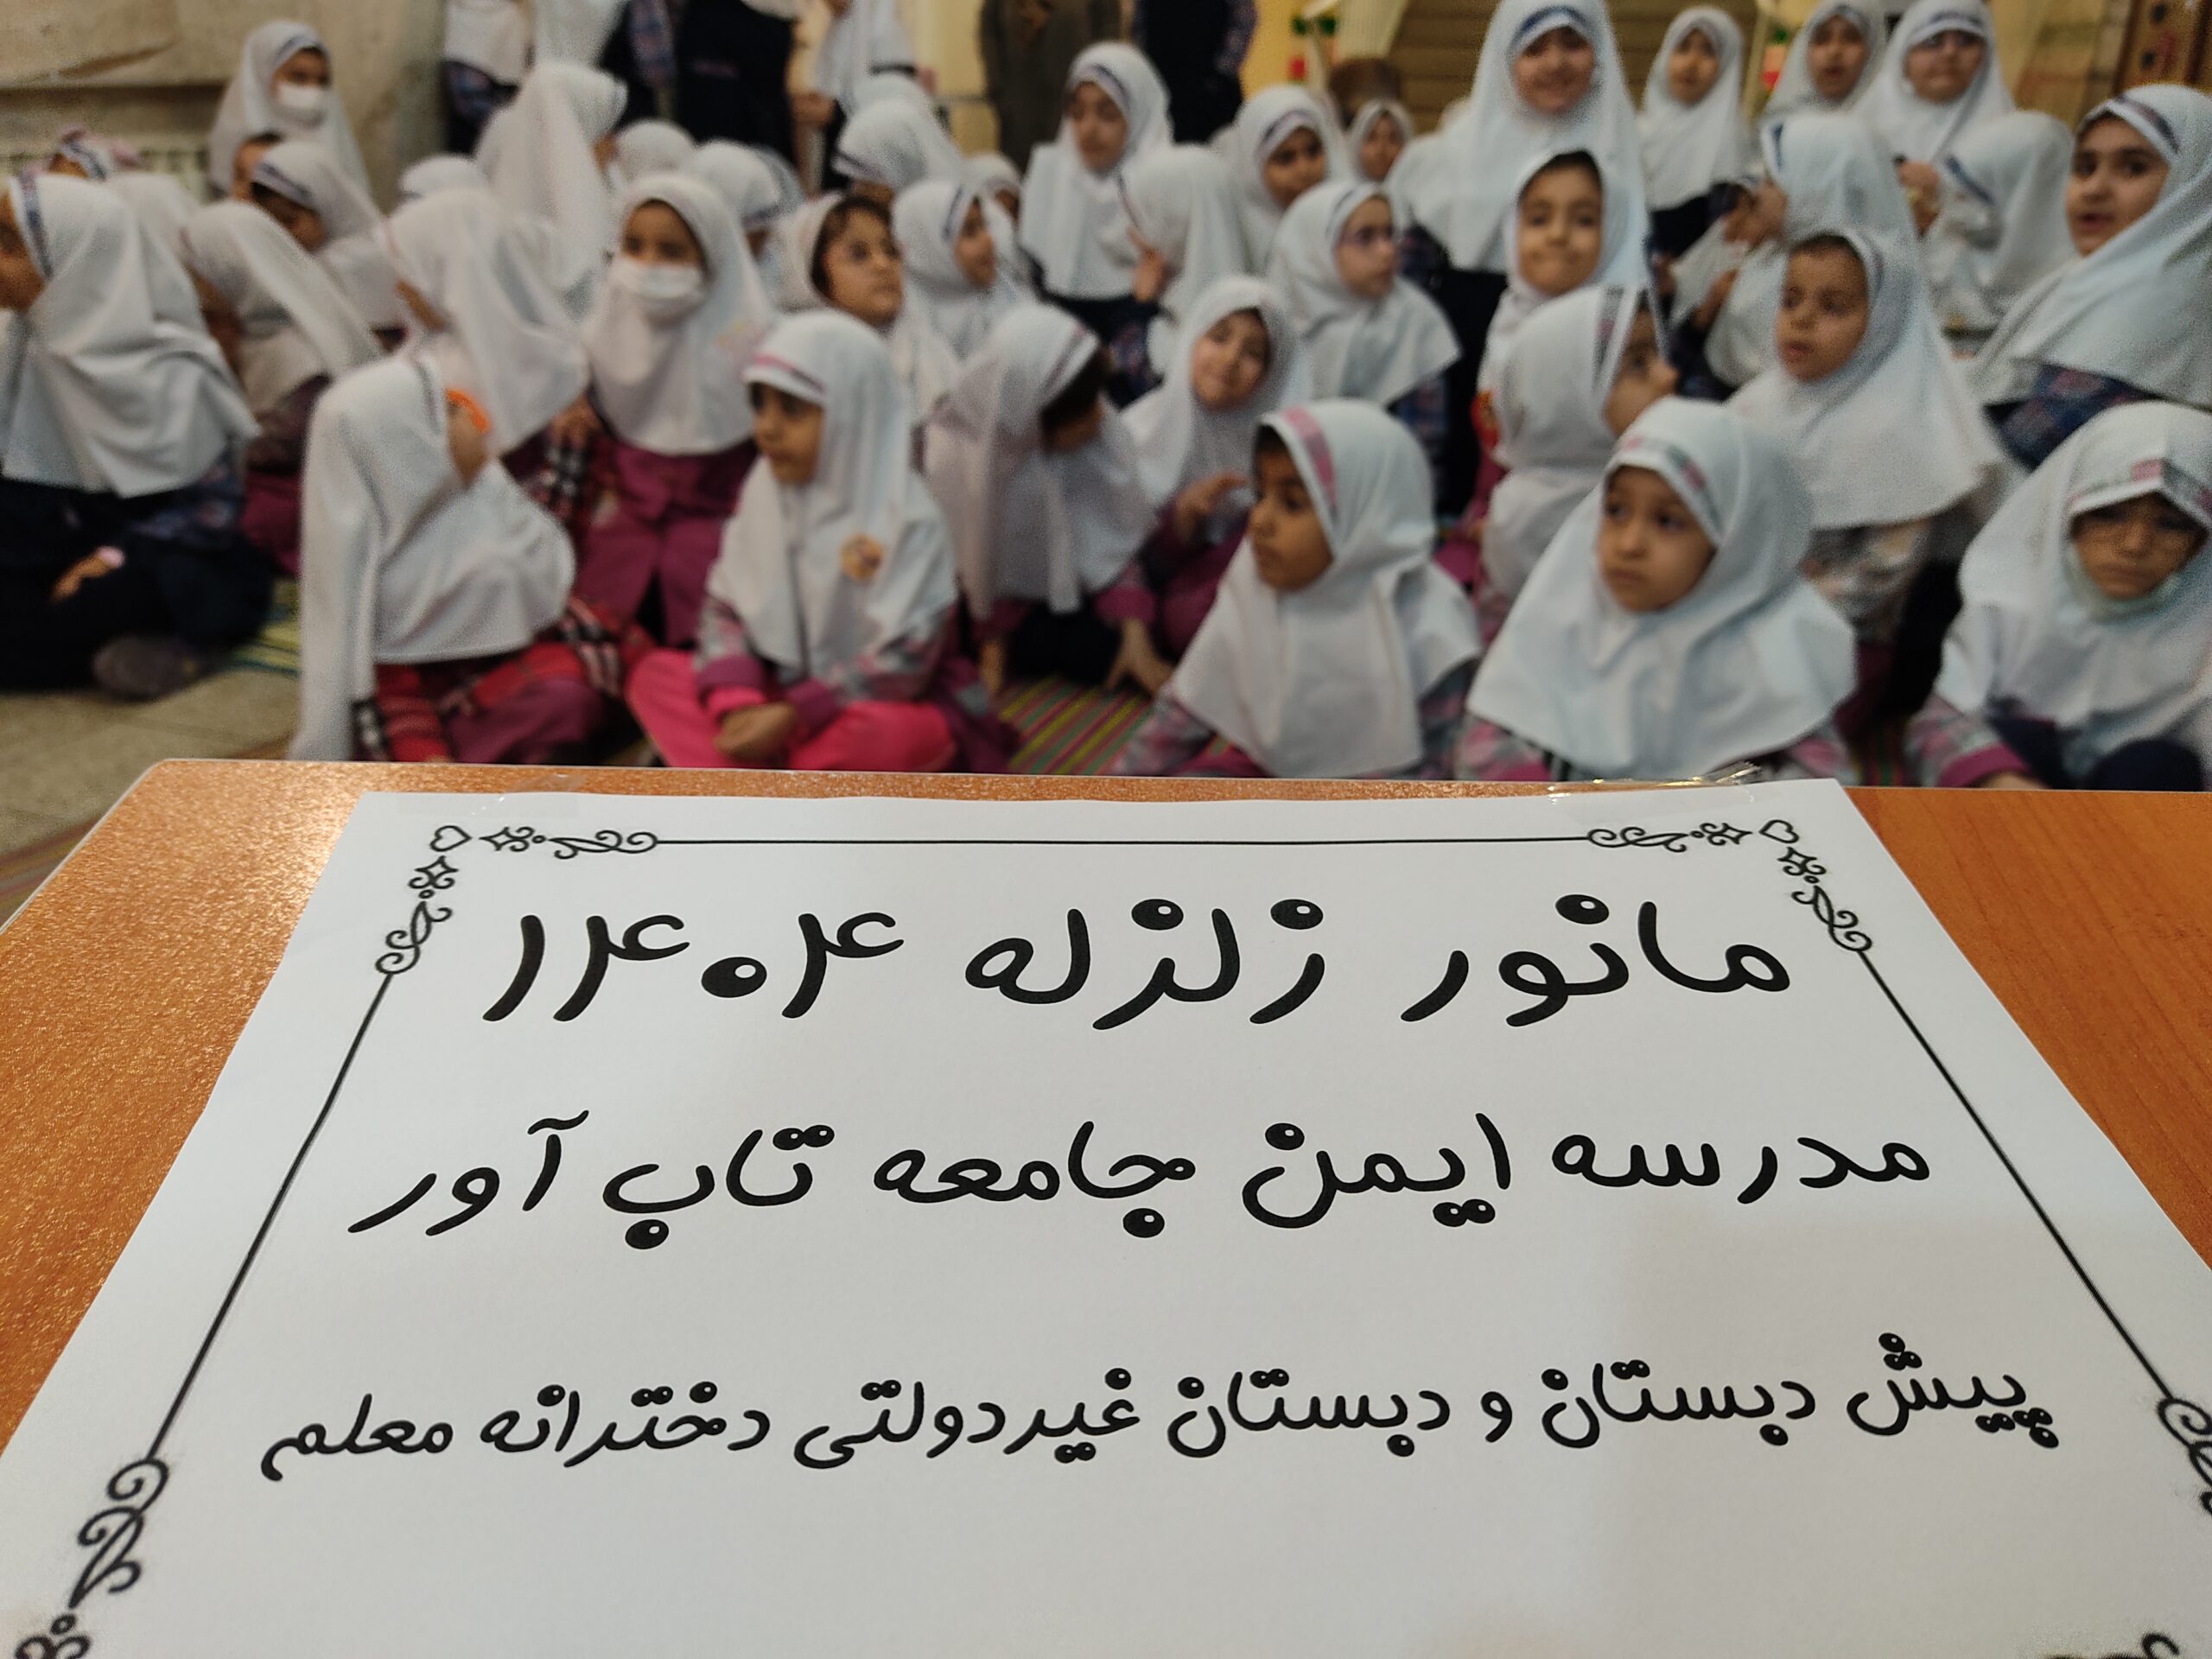 مانور زلزله ۱۴۰۴
مدرسه ایمن جامعه تاب آور
پیش دبستان و دبستان غیردولتی دخترانه معلم